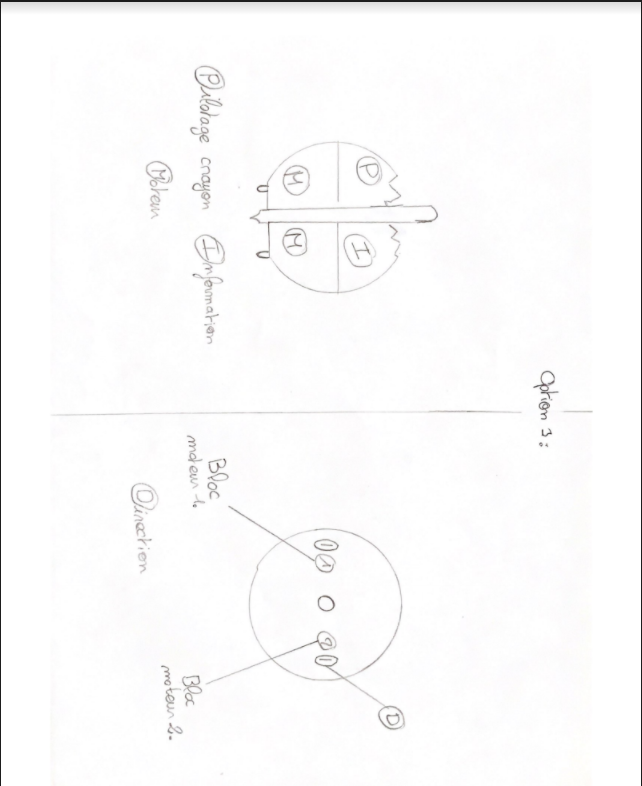 Option 3:
P
I
M
M
Pilotage crayon
Information
Moteur
1
2
D
Bloc
moteur 1.
Bloc
moteur 2.
Direction